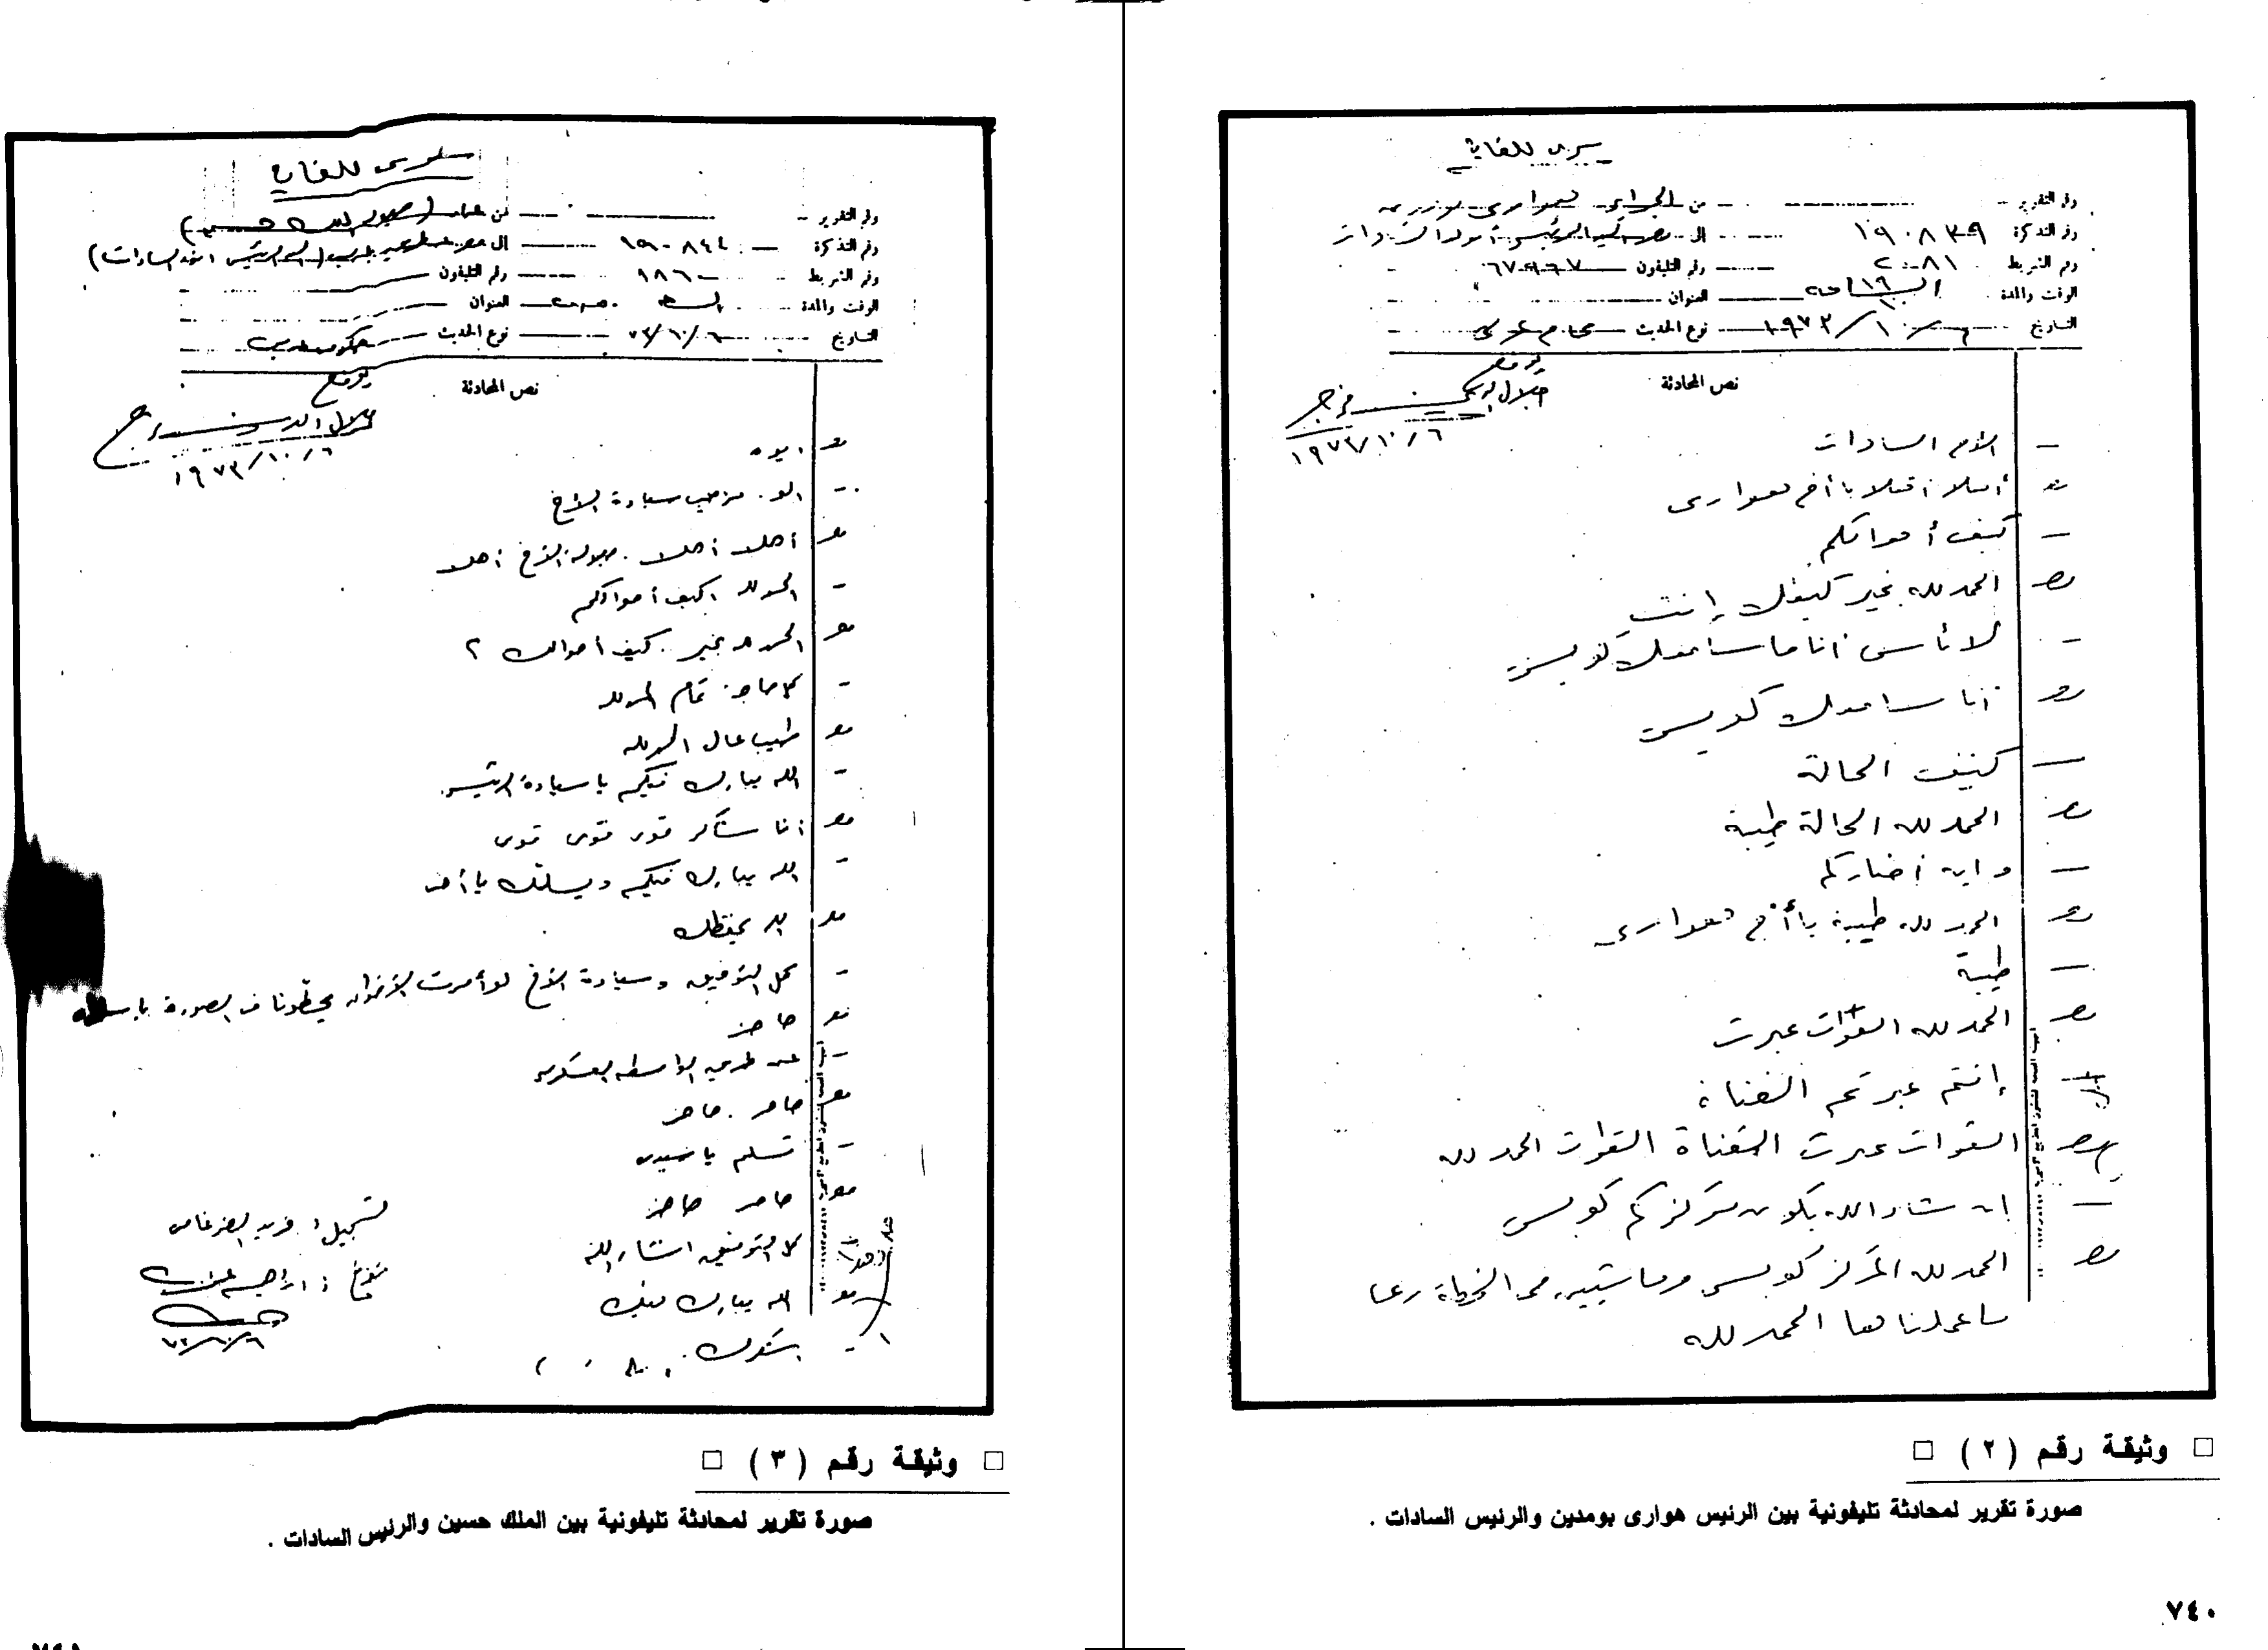 سرى للغاية
رقم التقرير من الجزائر هوارى بومدين
رقم التذكرة ١٩٠٨٣٩ الى مصر السيد الرئيس أنور السادات
رقم الشريط ٢٠٨١ رقم التليفون
الوقت والمدة الساعة العنوان
التاريخ ٦/١٠/١٩٧٣ نوع الحديث
نص المحادثة
٦/١٠/١٩٧٣
— الأخ السادات
مصر أهلا أهلا يا أخ هوارى
— كيف أحوالكم
مصر الحمد لله بخير كيفك إنت
— لا بأس أنا ما سامعك كويس
مصر أنا سامعك كويس
— كيف الحالة
مصر الحمد لله الحالة طيبة
— وايه أخباركم
مصر الحمد لله طيبة يا أخ هوارى
— طيبة
مصر الحمد لله القوات عبرت
— إنتم عبرتم القناة
مصر القوات عبرت القناة القوات الحمد لله
— ان شاء الله يكون مركزكم كويس
مصر الحمد لله المركز كويس وماشيين فى الخطة زى ما
عملناها الحمد لله
□ وثيقة رقم (٢) □
صورة تقرير لمحادثة تليفونية بين الرئيس هوارى بومدين والرئيس السادات .
٧٤٠
سرى للغاية
رقم التقرير من عمان (الملك حسين)
رقم التذكرة ١٩٠٨٤٤ الى مصر (السيد الرئيس أنور السادات)
رقم الشريط ١٨٦٠ رقم التليفون
الوقت والمدة العنوان
التاريخ ٦/١٠/٧٣ نوع الحديث
نص المحادثة
٦/١٠/١٩٧٣
مصر ايوه
- الو . مرحب سيادة الأخ
مصر أهلا أهلا . جلالة الأخ أهلا
- الحمد لله كيف أحوالكم
مصر الحمد لله بخير . كيف أحوالك ؟
- كل حاجة تمام الحمد لله
مصر طيب عال الحمد لله
- الله يبارك فيكم يا سيادة الرئيس
مصر أنا شاكر قوى قوى قوى
- الله يبارك فيكم ويسلمك يا أخ
مصر الله يحفظك
- كل التوفيق وسيادة الأخ لو أمرت الأخوان يحطونا فى الصورة
مصر حاضر
- عن طريق الواسطة العسكرية
مصر حاضر . حاضر
- تسلم يا سيدى
مصر حاضر حاضر
- كل التوفيق انشاء الله
مصر الله يبارك فيك
- اشكرك .
تسجيل :
تفريغ :
□ وثيقة رقم (٣) □
صورة تقرير لمحادثة تليفونية بين الملك حسين والرئيس السادات .